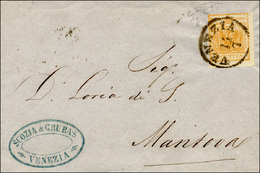 VENEZIA
Sig.
D. Loria di S.
Mantova
SCOZIA & GRUBAS
VENEZIA